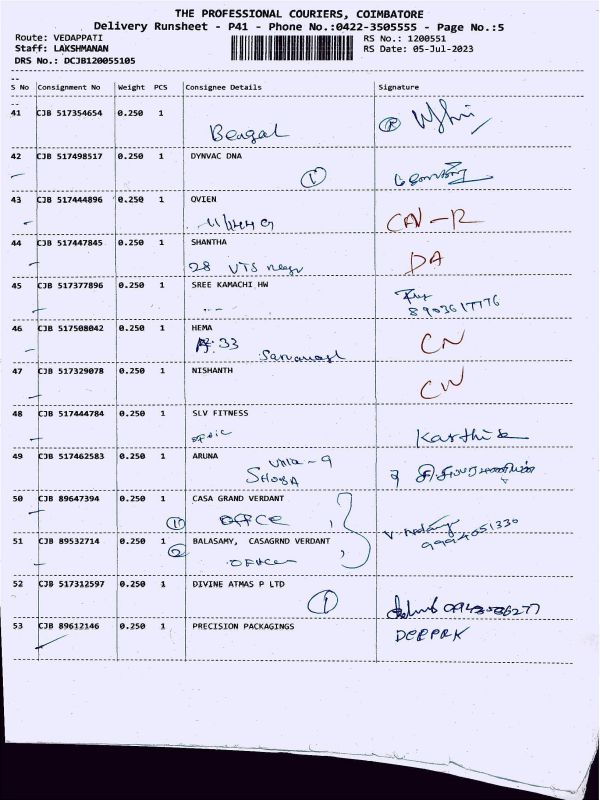 THE PROFESSIONAL COURIERS, COIMBATORE
Delivery Runsheet - P41 - Phone No.:0422-3505555 - Page No.:5
Route: VEDAPPATI RS No.: 1200551
Staff: LAKSHMANAN RS Date: 05-Jul-2023
DRS No.: DCJB120055105
S No Consignment No Weight PCS Consignee Details Signature
41 CJB 517354654 0.250 1
Bengal
42 CJB 517498517 0.250 1 DYNVAC DNA
1
43 CJB 517444896 0.250 1 OVIEN
44 CJB 517447845 0.250 1 SHANTHA
28 VTS nagr DA
45 CJB 517377896 0.250 1 SREE KAMACHI HW
8903617776
46 CJB 517508042 0.250 1 HEMA
33 CN
47 CJB 517329078 0.250 1 NISHANTH
48 CJB 517444784 0.250 1 SLV FITNESS
Karthik
49 CJB 517462583 0.250 1 ARUNA
SHOBA
50 CJB 89647394 0.250 1 CASA GRAND VERDANT
1 OFFICE
51 CJB 89532714 0.250 1 BALASAMY, CASAGRND VERDANT 9994051330
2 OFFICE
52 CJB 517312597 0.250 1 DIVINE ATMAS P LTD
1
53 CJB 89612146 0.250 1 PRECISION PACKAGINGS DEEPAK